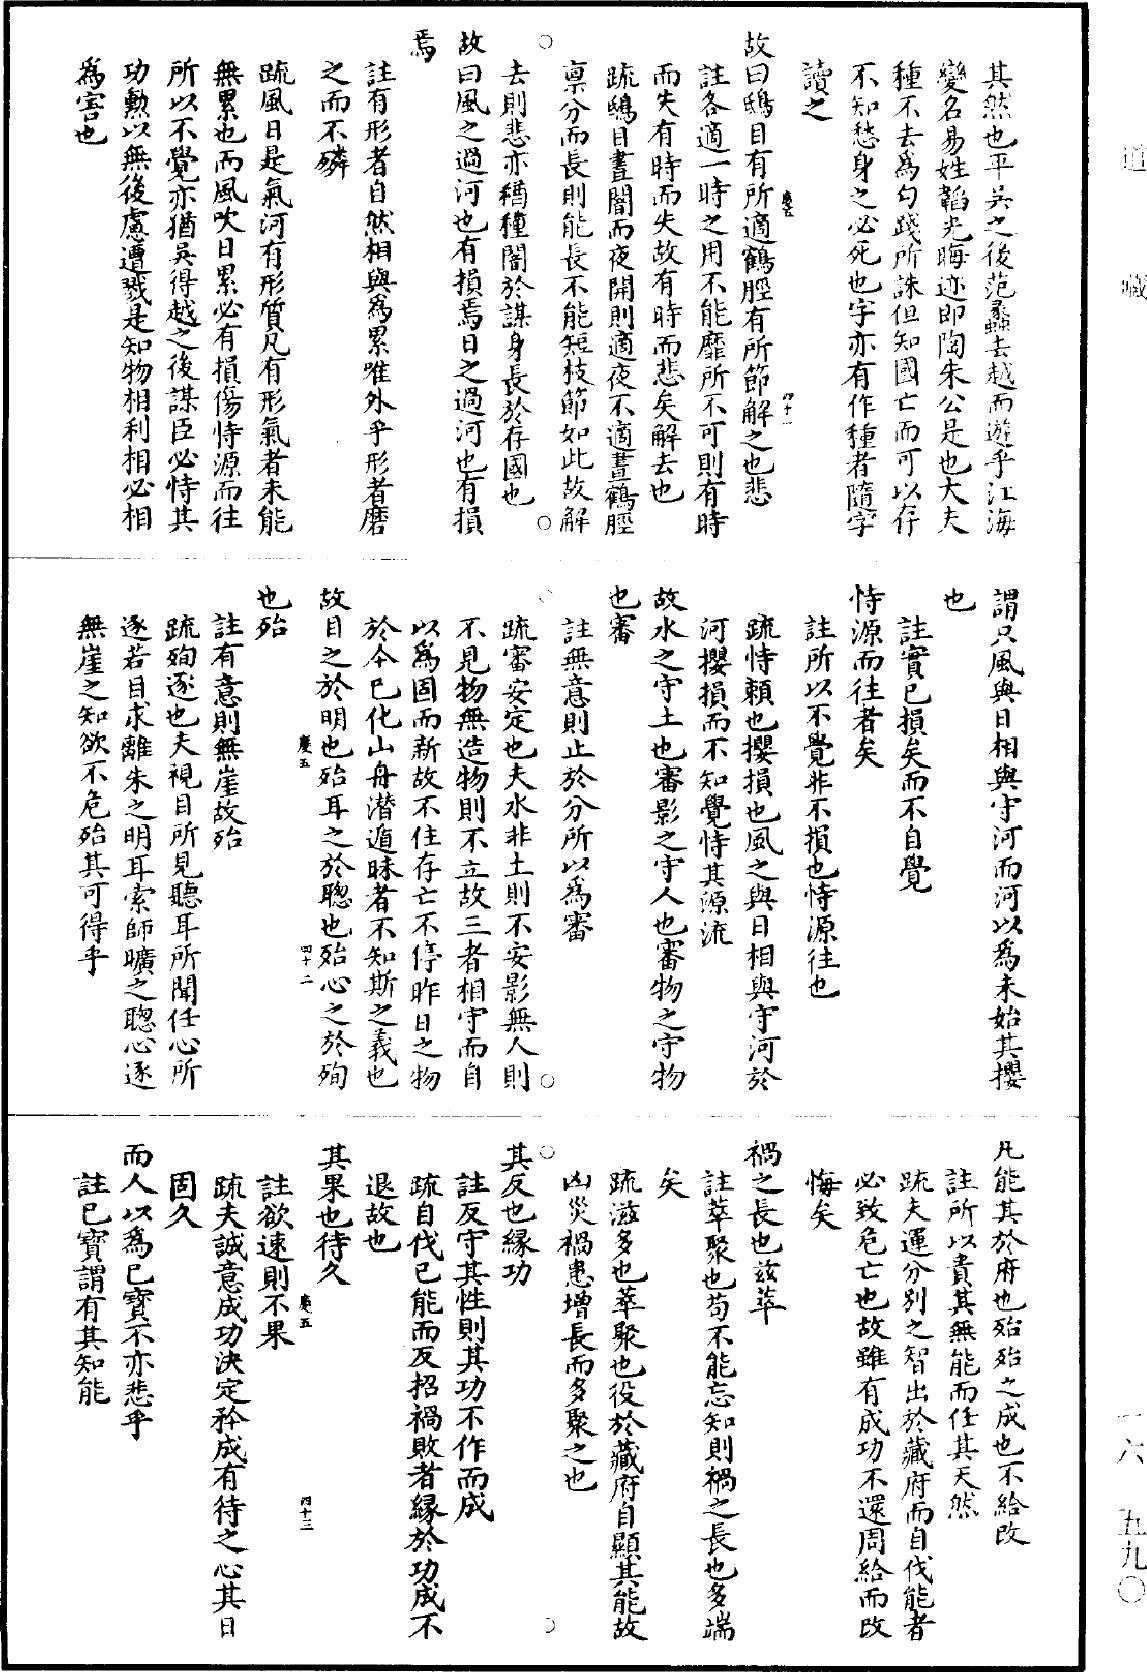 道藏
其然也平吳之後范蠡去越而遊乎江海
變名易姓韜光晦迹即陶朱公是也大夫
種不去爲勾踐所誅但知國亡而可以存
不知愁身之必死也字亦有作種者隨字
讀之
慶五
四十一
故曰鴟目有所適鶴脛有所節解之也悲
註各適一時之用不能靡所不可則有時
而失有時而失故有時而悲矣解去也
疏鴟目晝闇而夜開則適夜不適晝鶴脛
禀分而長則能長不能短枝節如此故解
去則悲亦猶種闇於謀身長於存國也
故曰風之過河也有損焉日之過河也有損
焉
註有形者自然相與爲累唯外乎形者磨
之而不磷
疏風日是氣河有形質凡有形氣者未能
無累也而風吹日累必有損傷恃源而往
所以不覺亦猶吳得越之後謀臣必恃其
功勳以無後慮遭戮是知物相利相必相
爲害也
謂只風與日相與守河而河以爲未始其攖
也
註實已損矣而不自覺
恃源而往者矣
註所以不覺非不損也恃源往也
疏恃賴也攖損也風之與日相與守河於
河攖損而不知覺恃其源流
故水之守土也審影之守人也審物之守物
也審
註無意則止於分所以爲審
疏審安定也夫水非土則不安影無人則
不見物無造物則不立故三者相守而自
以爲固而新故不住存亡不停昨日之物
於今已化山舟潜遁昧者不知斯之義也
故目之於明也殆耳之於聰也殆心之於殉
慶五
四十二
也殆
註有意則無崖故殆
疏殉逐也夫視目所見聽耳所聞任心所
逐若目求離朱之明耳索師曠之聰心逐
無崖之知欲不危殆其可得乎
凡能其於府也殆殆之成也不給改
註所以貴其無能而任其天然
疏夫運分別之智出於藏府而自伐能者
必致危亡也故雖有成功不還周給而改
悔矣
禍之長也玆萃
註萃聚也苟不能忘知則禍之長也多端
矣
疏滋多也萃聚也役於藏府自顯其能故
凶災禍患增長而多聚之也
其反也緣功
註反守其性則其功不作而成
疏自伐已能而反招禍敗者緣於功成不
退故也
其果也待久
慶五
四十三
註欲速則不果
疏夫誠意成功決定矜成有待之心其日
固久
而人以爲已寶不亦悲乎
註已寶謂有其知能
一六
五九〇